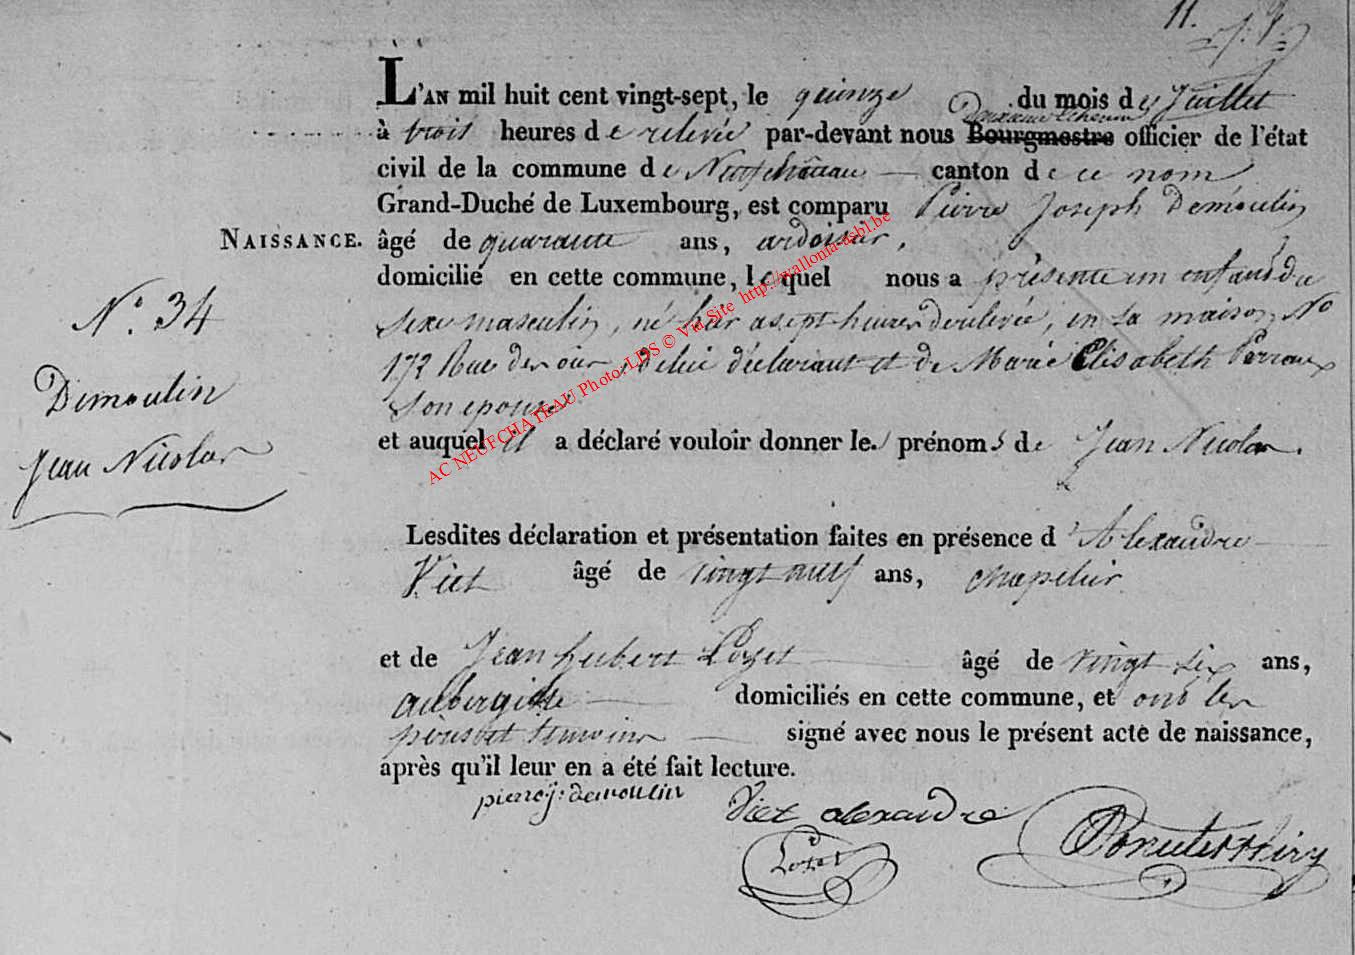 11.
L'AN mil huit cent vingt-sept, le quinze du mois de Juillet
Deuxieme Echevin
à trois heures de relevée par-devant nous Bourgmestre officier de l'état
civil de la commune de Neufchâteau canton de ce nom
Grand-Duché de Luxembourg, est comparu Pierre Joseph Demoulin
NAISSANCE. âgé de quarante ans, ardoisier,
domicilié en cette commune, lequel nous a présenté un enfant du
sexe masculin, né hier a sept heures de relevée, en sa maison, No
172 Rue de lui déclarant et de Marie Elisabeth Perraux
Son epouse.
et auquel il a déclaré vouloir donner les prénoms de Jean Nicolas.
No. 34
Demoulin
Jean Nicolas
Lesdites déclaration et présentation faites en présence d'Alexandre
Viet âgé de vingt neuf ans, chapelier
et de Jean hubert Lozet âgé de vingt six ans,
aubergiste domiciliés en cette commune, et ont les
père et temoins signé avec nous le présent acte de naissance,
après qu'il leur en a été fait lecture.
pierre j: demoulin
Viet alexandre
Lozet
AC NEUFCHATEAU Photo: LDS © Via Site http://wallonia-asbl.be